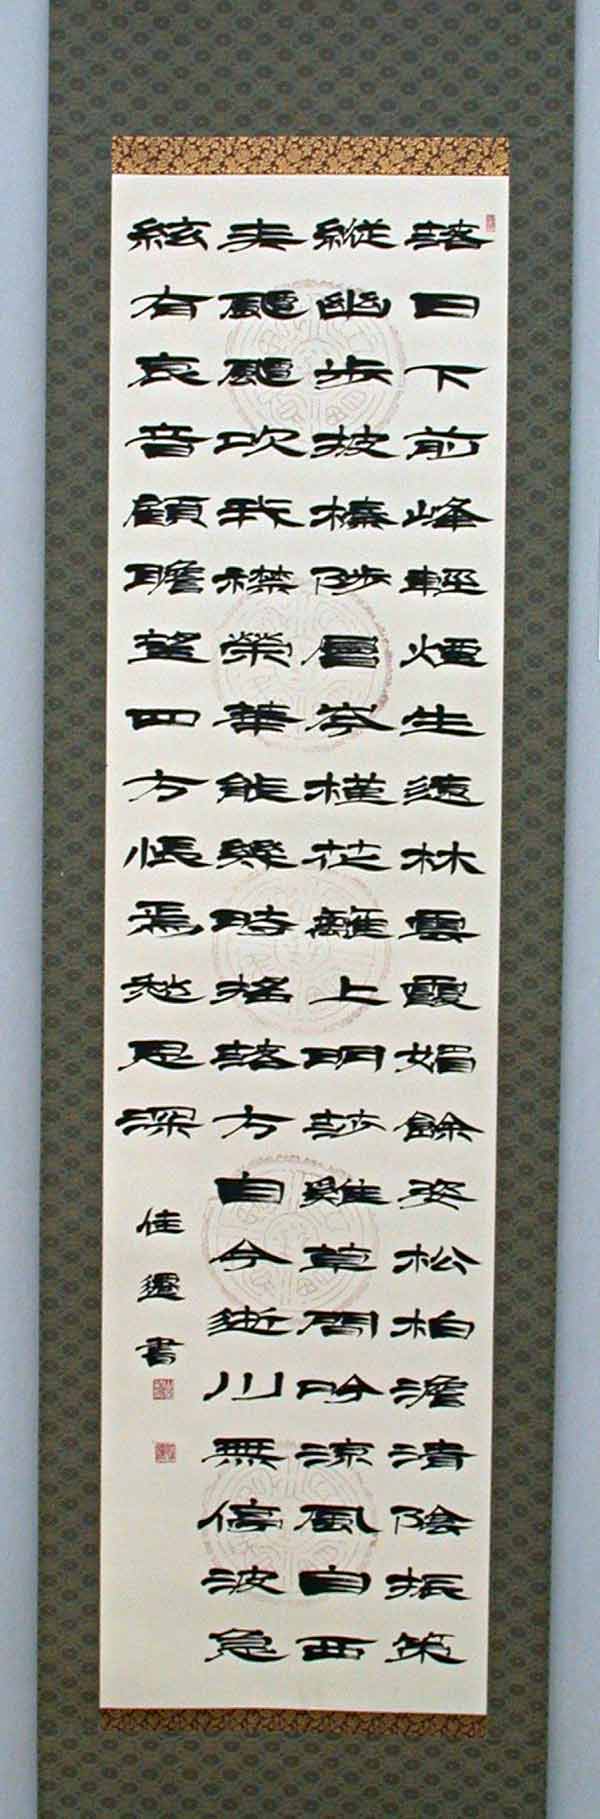 落日下前峰輕煙生遠林雲霞媚餘姿松柏澹清陰振策
縱幽步披榛陟層岑槿花籬上明莎雞草間吟涼風自西
来飃飃吹我襟榮華能幾時搖落方自今逝川無停波急
絃有哀音顧瞻望四方悵焉愁思深
佳遷書